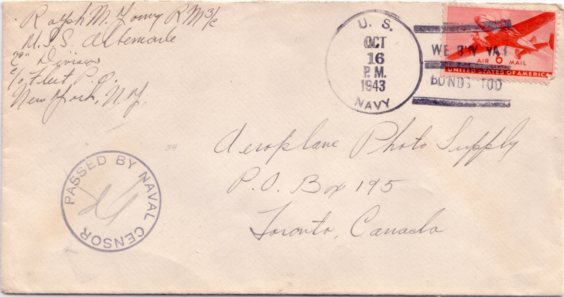 Ralph M. Lowy RM 3/c
U.S.S. Albemarle
Division
c/o Fleet P.O.
New York, N.Y.
U. S.
OCT
16
P.M.
1943
NAVY
WE BUY WAR
BONDS TOO
AIR 6 MAIL
UNITED STATES OF AMERICA
PASSED BY NAVAL CENSOR
Aeroplane Photo Supply
P.O. Box 195
Toronto, Canada